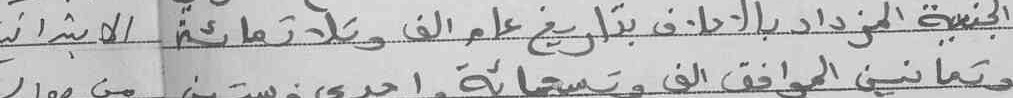 الجنسية المزداد بالاحلاف بتاريخ عام الف وثلاثمائة
وثمانين الموافق الف وتسعمائة واحدى وستين من